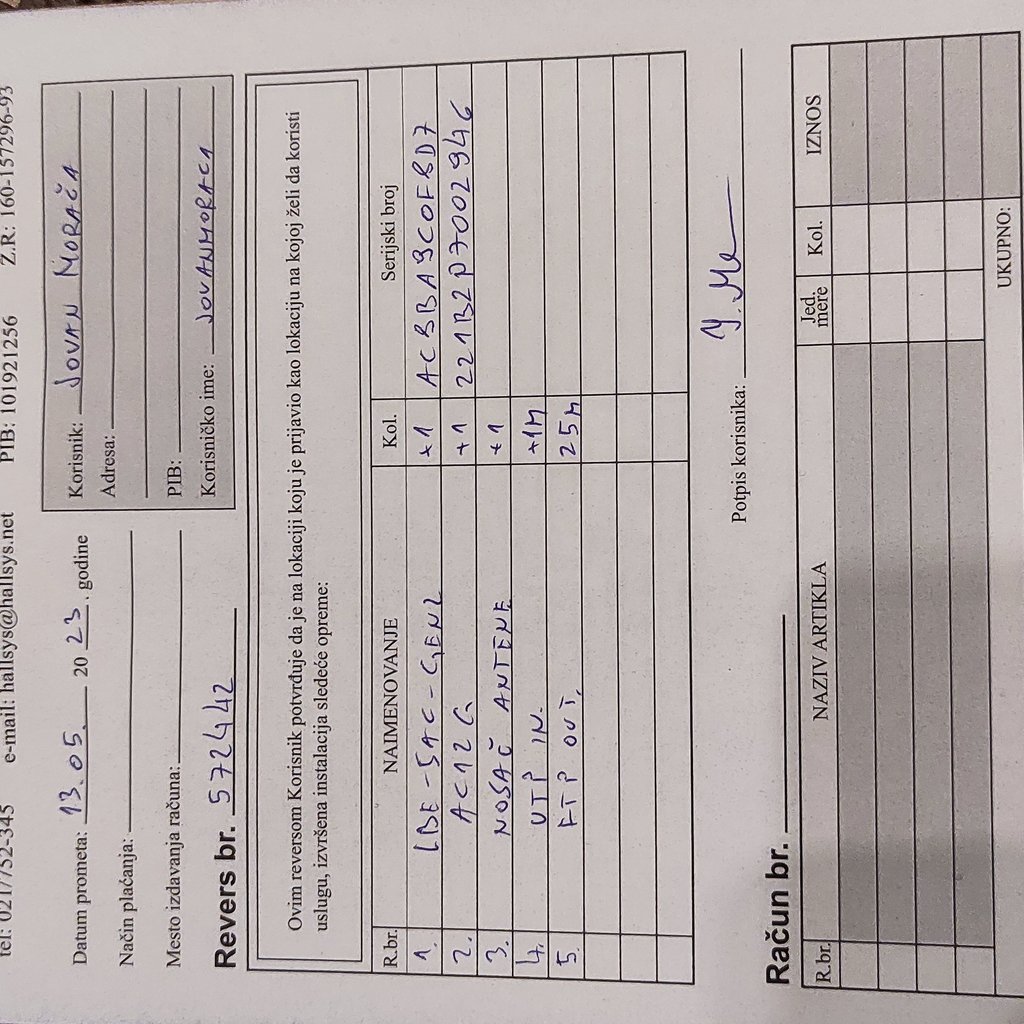 tel: 021/752-345 e-mail: hallsys@hallsys.net PIB: 101921256 Z.R: 160-157296-93
Datum prometa: 13.05. 20 23. godine
Način plaćanja:
Mesto izdavanja računa:
Korisnik: JOVAN MORAČA
Adresa:
PIB:
Korisničko ime: JOVANMORACA
Revers br. 572442
Ovim reversom Korisnik potvrđuje da je na lokaciji koju je prijavio kao lokaciju na kojoj želi da koristi
uslugu, izvršena instalacija sledeće opreme:
R.br. NAIMENOVANJE Kol. Serijski broj
1. LBE-5AC-GEN2 +1 AC8BA93C0F8D7
2. AC12G +1 221B2P7002946
3. NOSAČ ANTENE +1
4. UTP IN. +1M
5. FTP OUT. 25M
Potpis korisnika:
Račun br.
R.br. NAZIV ARTIKLA Jed. mere Kol. IZNOS
UKUPNO: